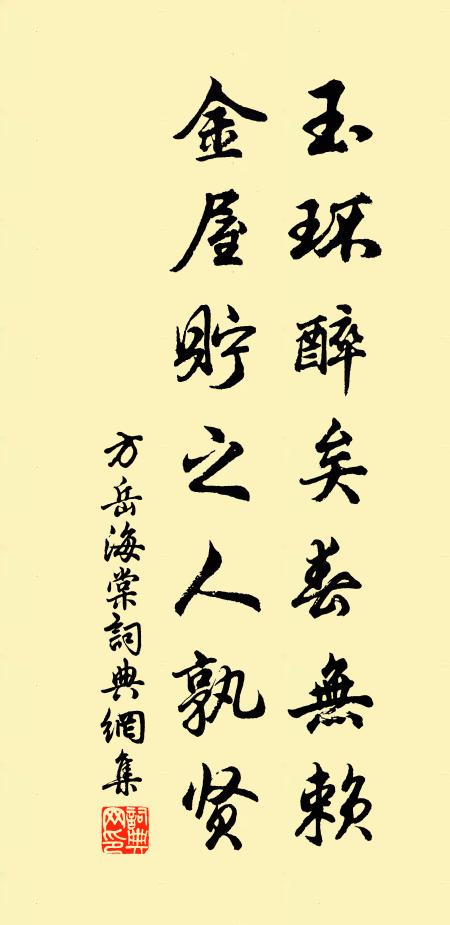 玉环醉矣春無賴
金屋貯之人孰贤
方岳海棠詞典網集
詞典网印